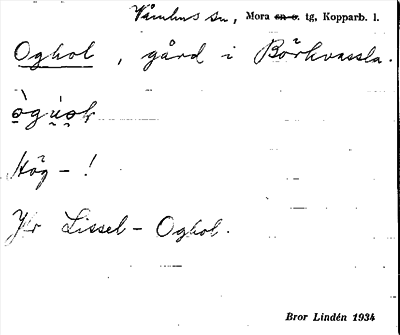 Våmhus sn, Mora sn o. tg, Kopparb. l.
Oghol, gård i Börkvassla.
Hög - !
Jfr Lissel-Oghol.
Bror Lindén 1934